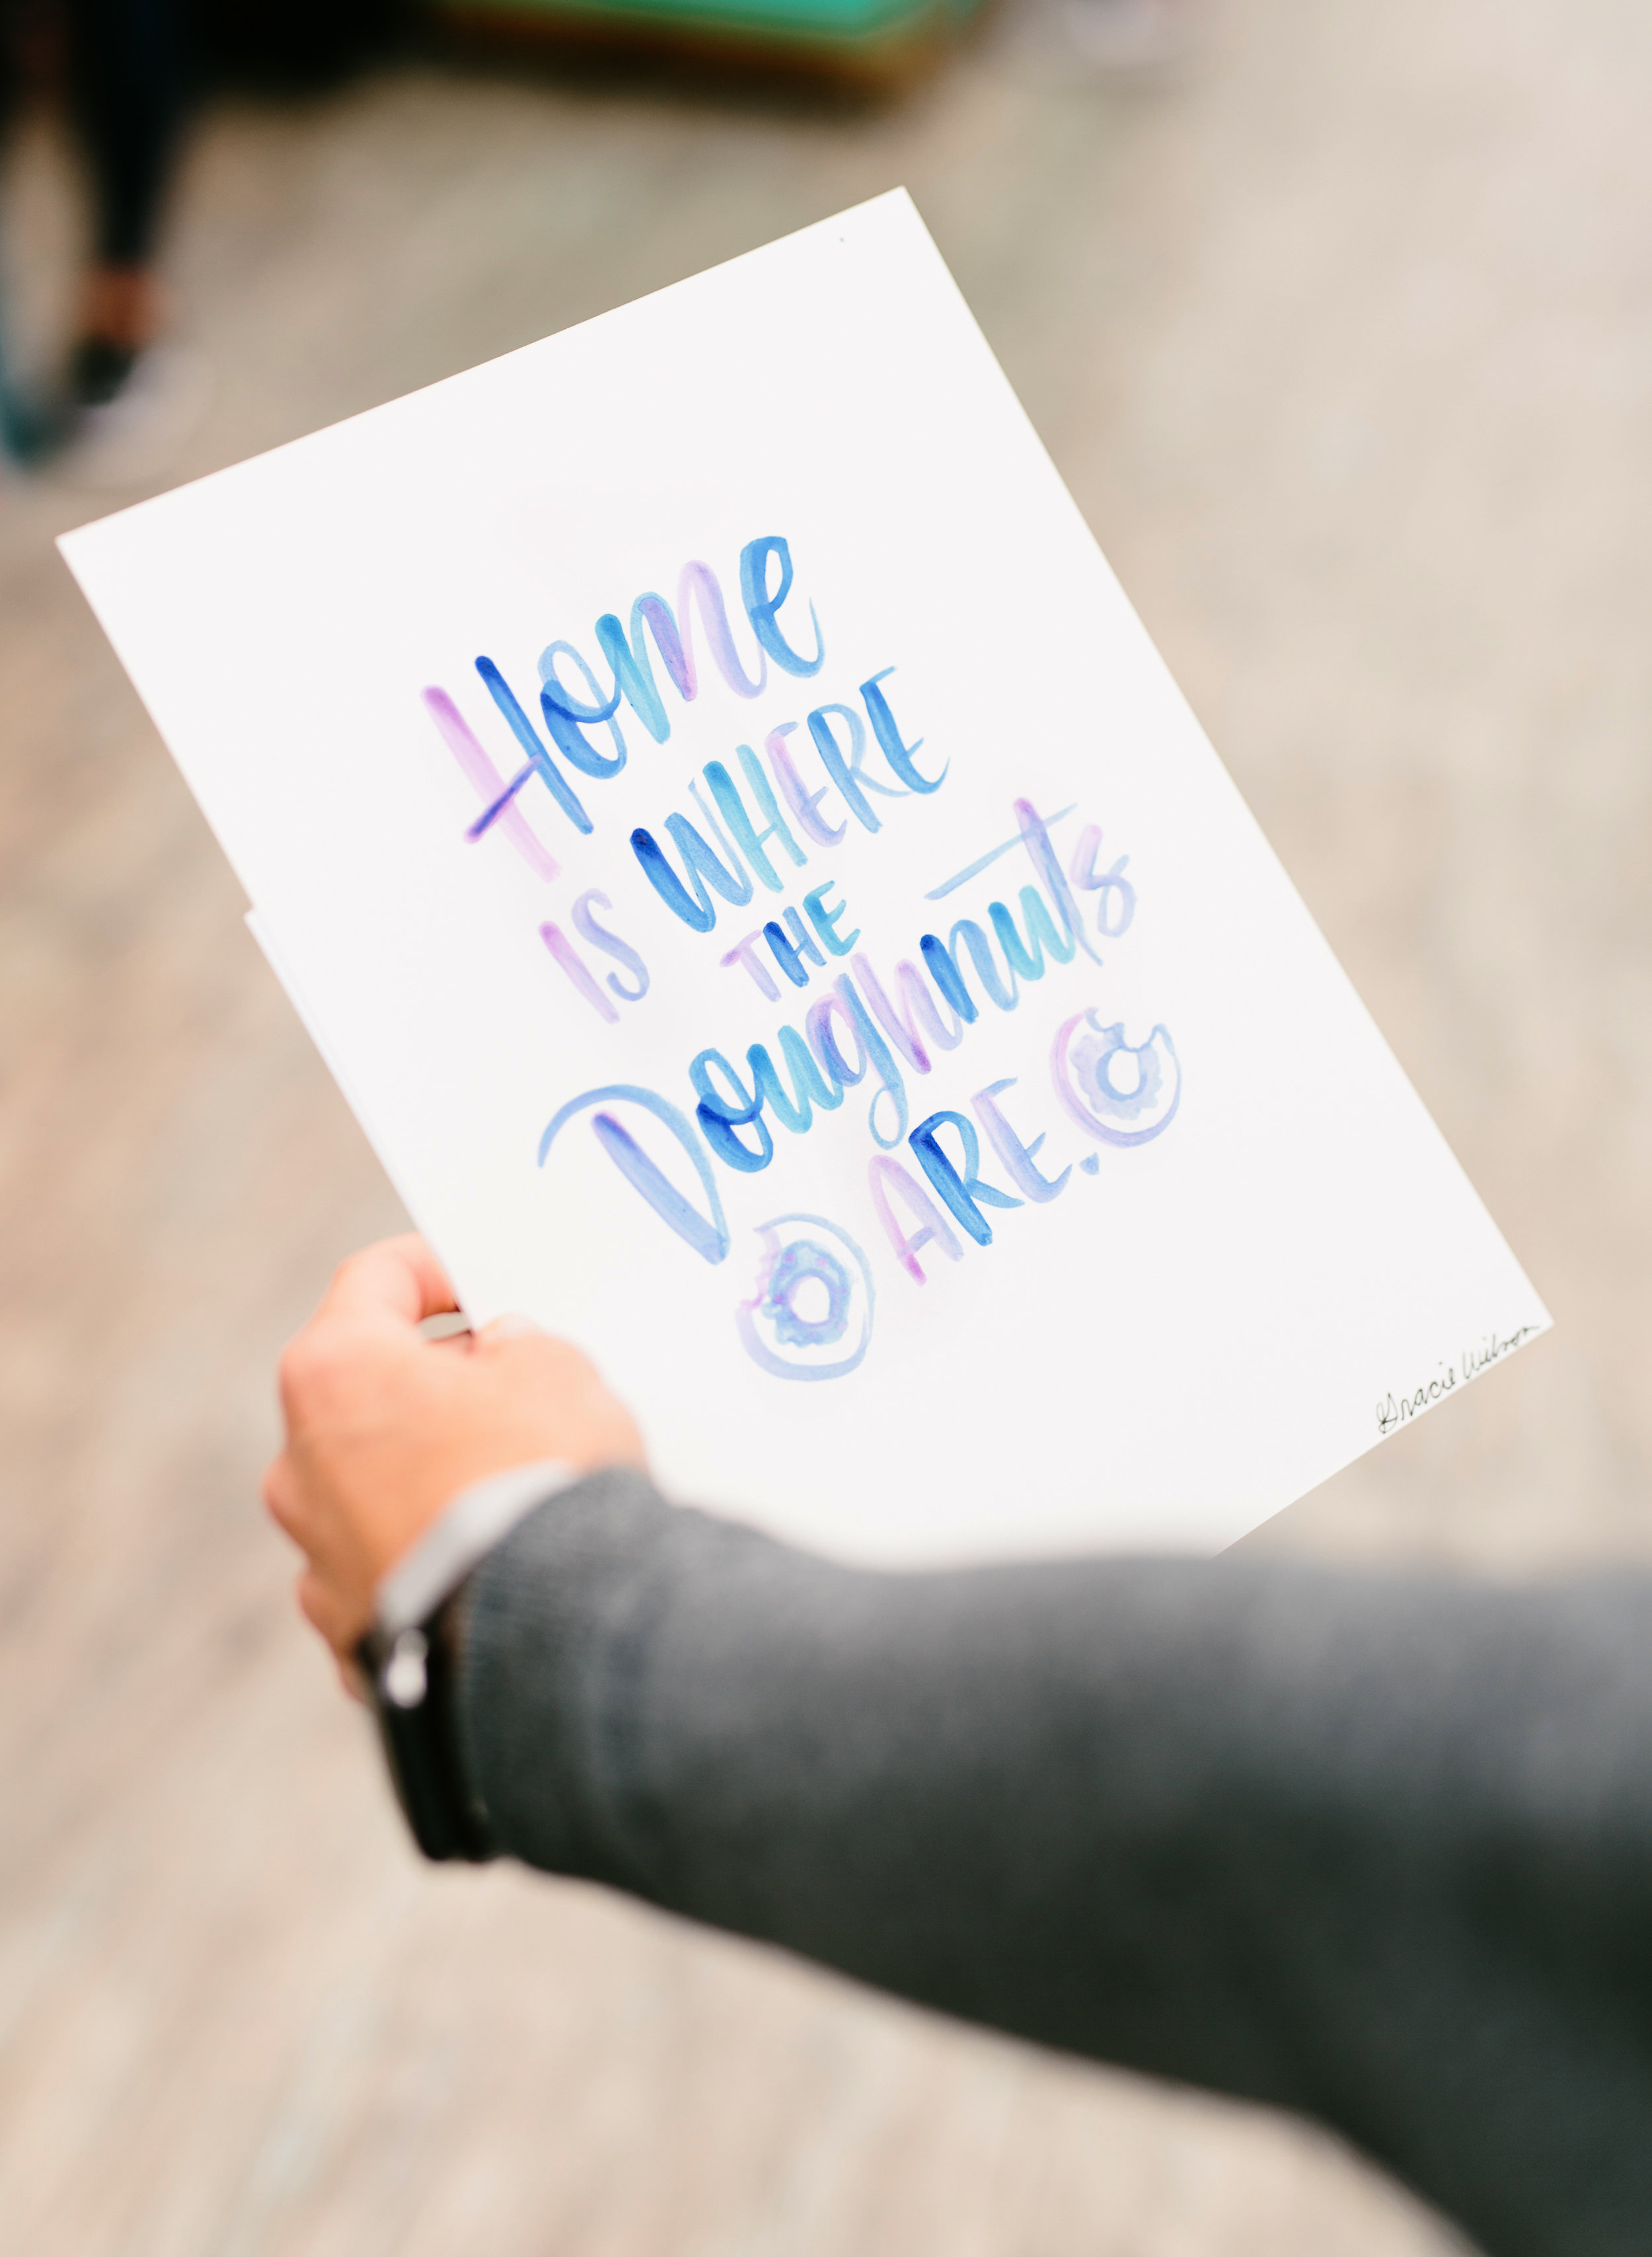 Home
IS WHERE
THE
Doughnuts
ARE.
Gracie Wilson